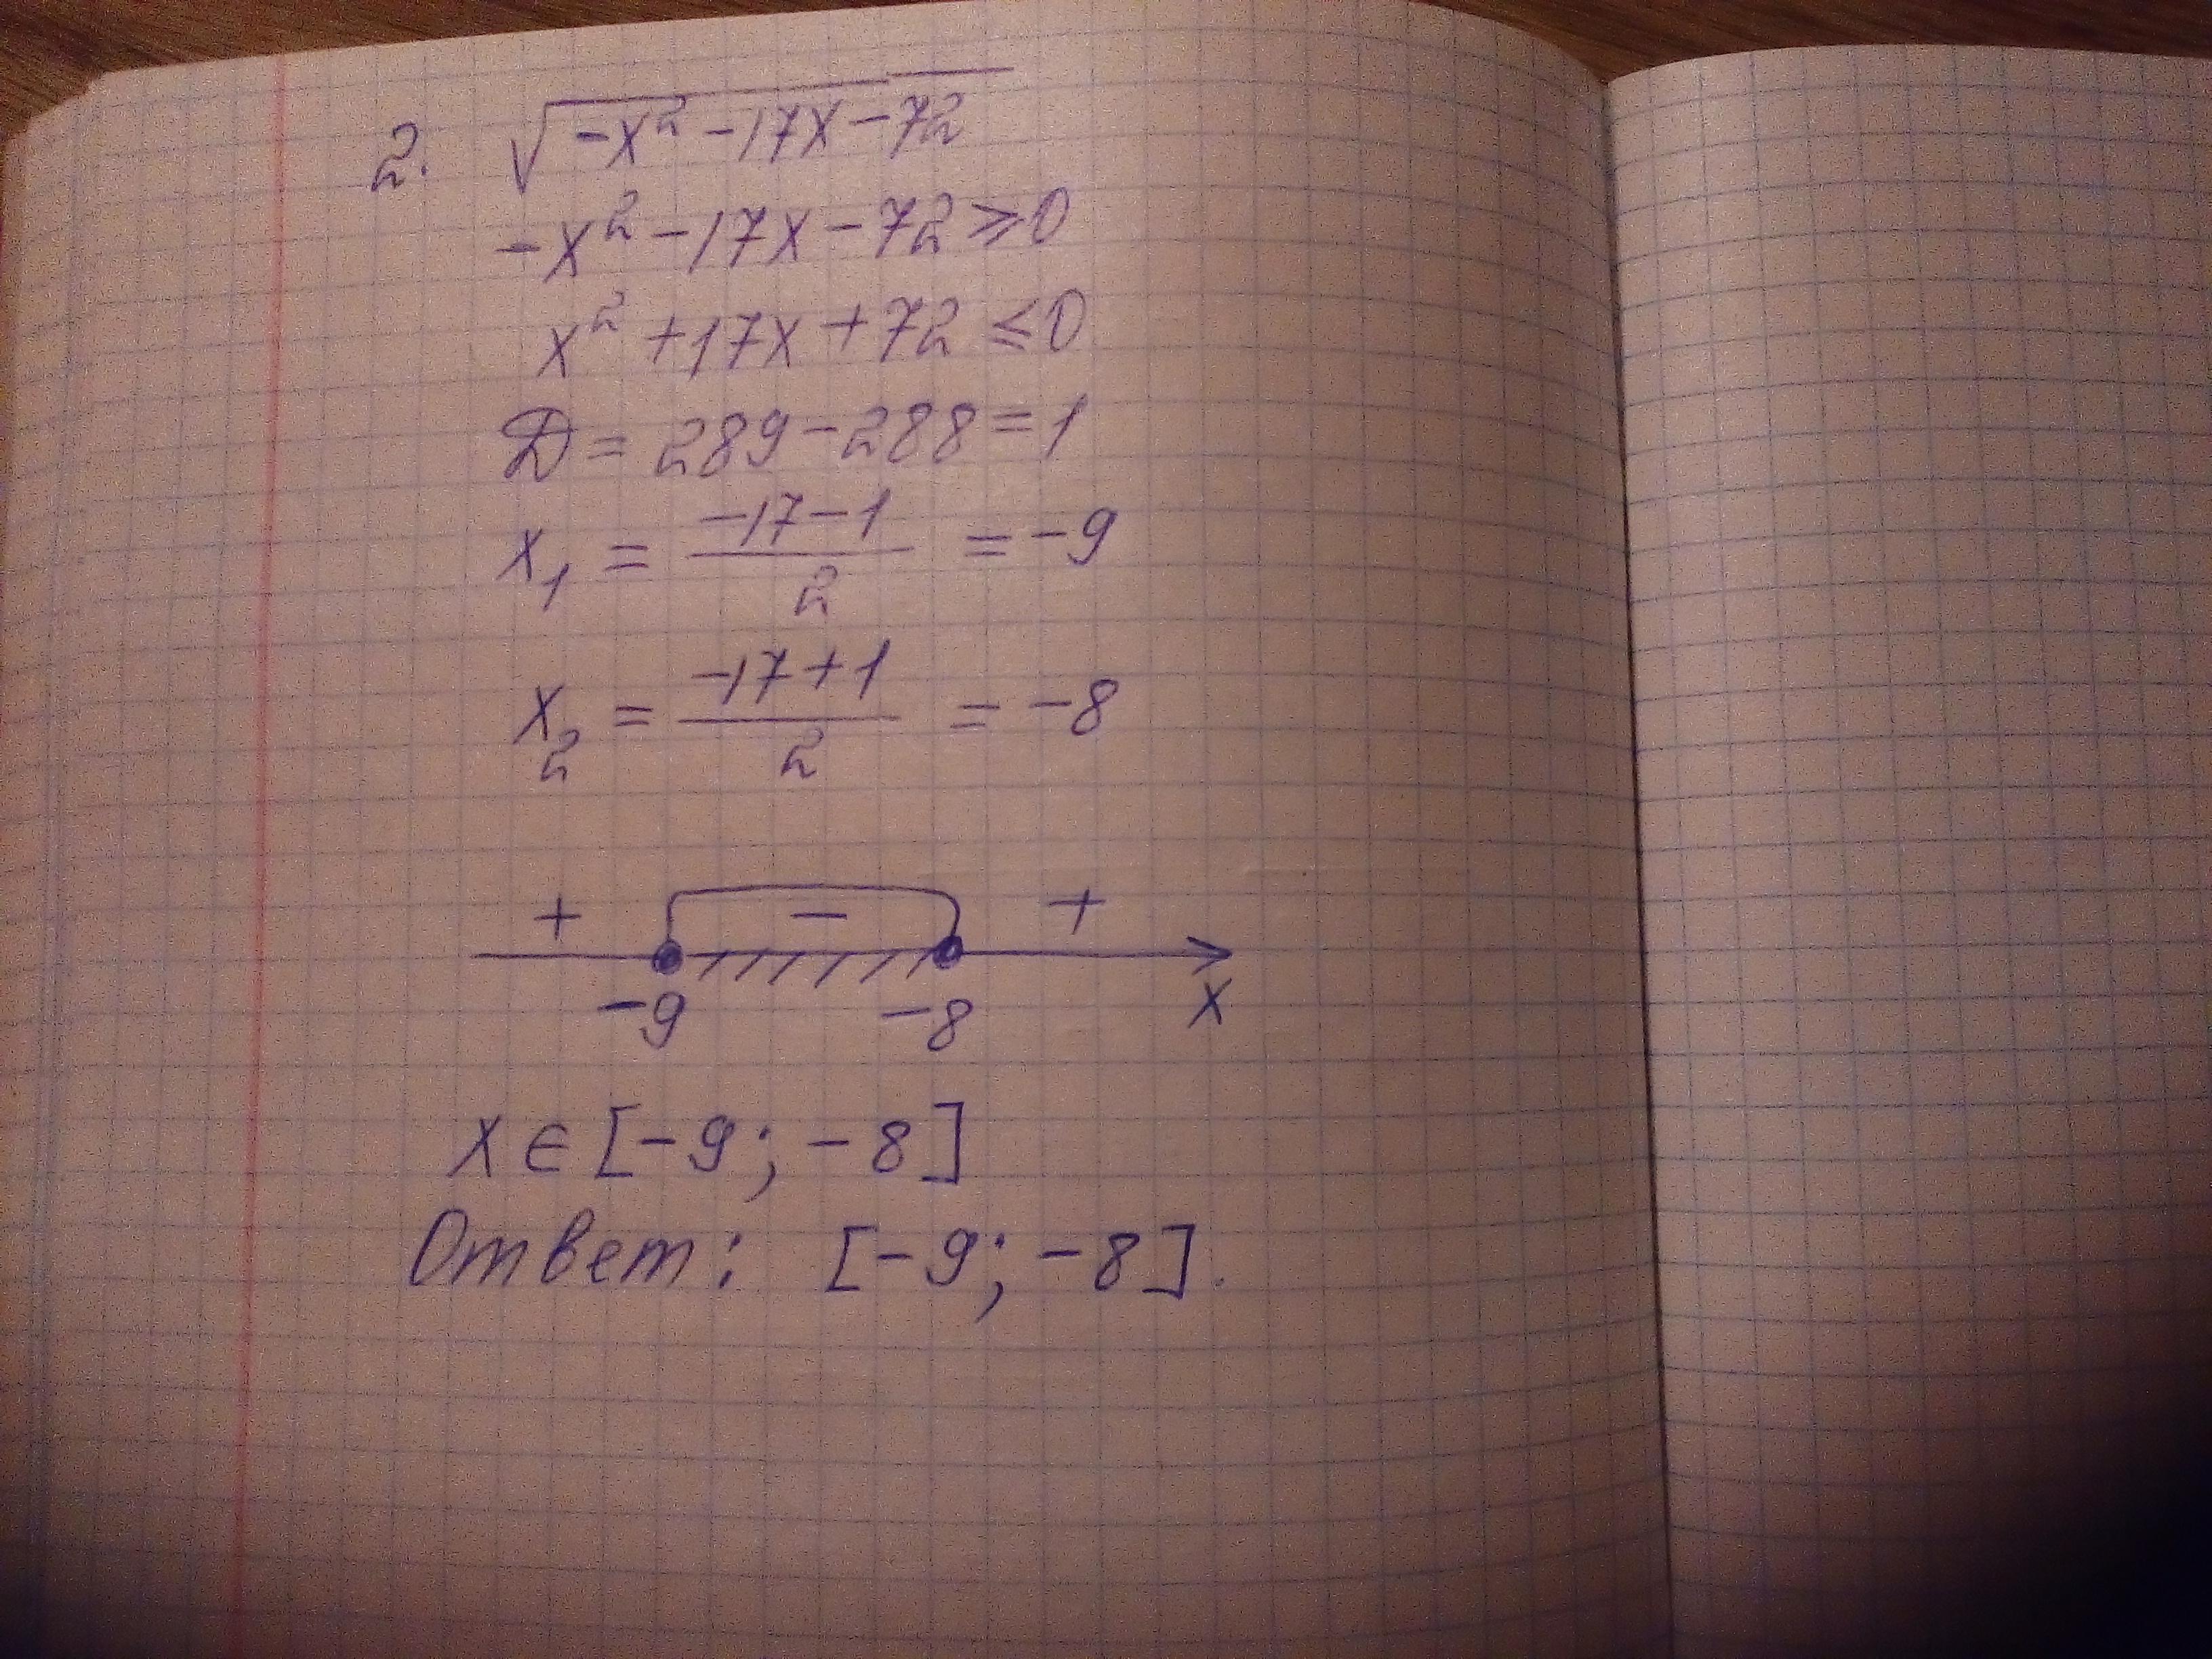 2. √(-x² -17x -72)
-x² -17x -72 ⩾ 0
x² +17x +72 ⩽ 0
D = 289 - 288 = 1
x₁ = (-17-1)/2 = -9
x₂ = (-17+1)/2 = -8
+ − +
-9 -8 x
x ∈ [-9; -8]
Ответ: [-9; -8].